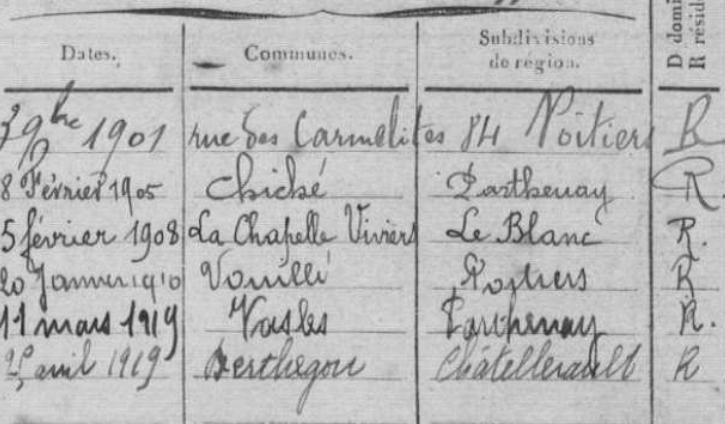 Dates. Communes. Subdivisions de région. D domi R résid
9bre 1901 rue des Carmélites 84 Poitiers R
8 Février 1905 Chiché Parthenay R
5 février 1908 La Chapelle Viviers Le Blanc R.
20 Janvier 1910 Vouillé Poitiers R
11 mars 1919 Vasles Parthenay R.
avril 1919 Berthegon Châtellerault R